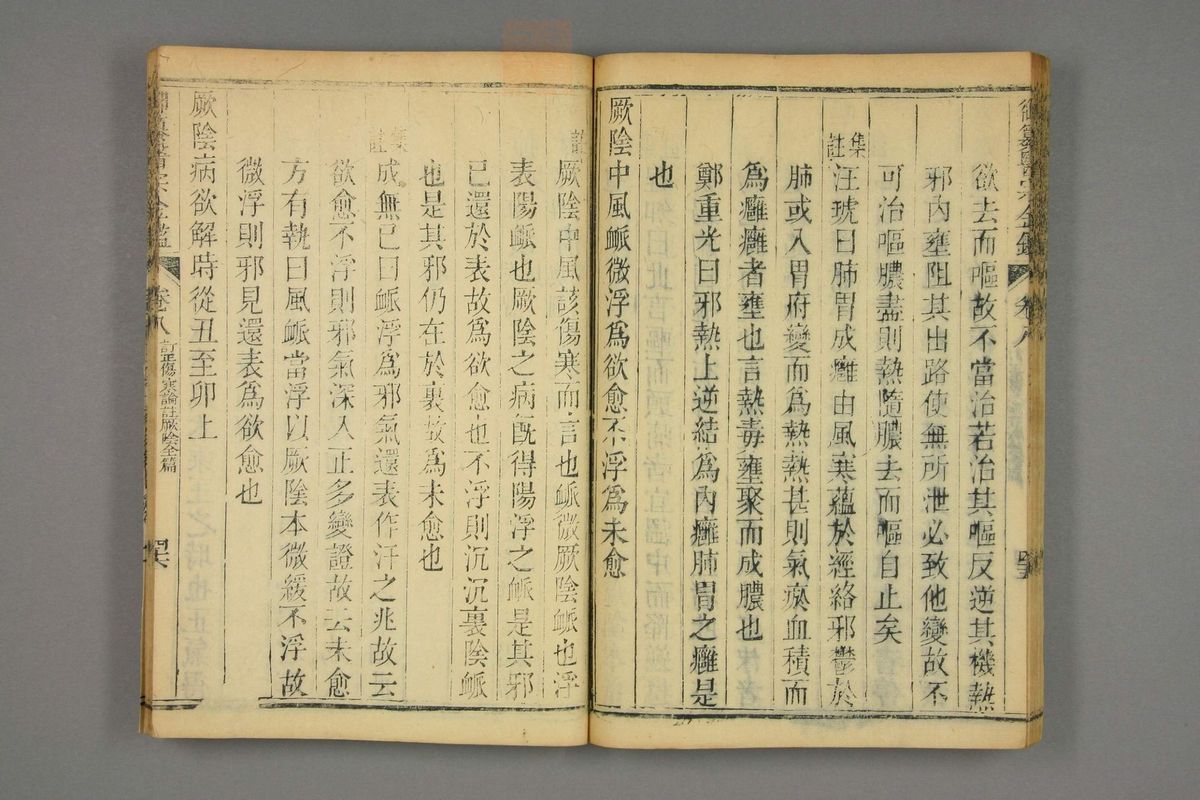 御纂醫宗金鑑 卷八
欲去而嘔故不當治若治其嘔反逆其機熱
邪內壅阻其出路使無所泄必致他變故不
可治嘔膿盡則熱隨膿去而嘔自止矣
集註汪琥曰肺胃成癰由風寒蘊於經絡邪鬱於
肺或入胃府變而為熱熱甚則氣瘀血積而
為癰癰者壅也言熱毒壅聚而成膿也
鄭重光曰邪熱上逆結為內癰肺胃之癰是
也
厥陰中風脈微浮為欲愈不浮為未愈
註厥陰中風該傷寒而言也脈微厥陰脈也浮
表陽脈也厥陰之病既得陽浮之脈是其邪
已還於表故為欲愈也不浮則沉沉裏陰脈
也是其邪仍在於裏故為未愈也
集註成無已曰脈浮為邪氣還表作汗之兆故云
欲愈不浮則邪氣深入正多變證故云未愈
方有執曰風脈當浮以厥陰本微緩不浮故
微浮則邪見還表為欲愈也
厥陰病欲解時從丑至卯上
卷八 訂正傷寒論註厥陰全篇